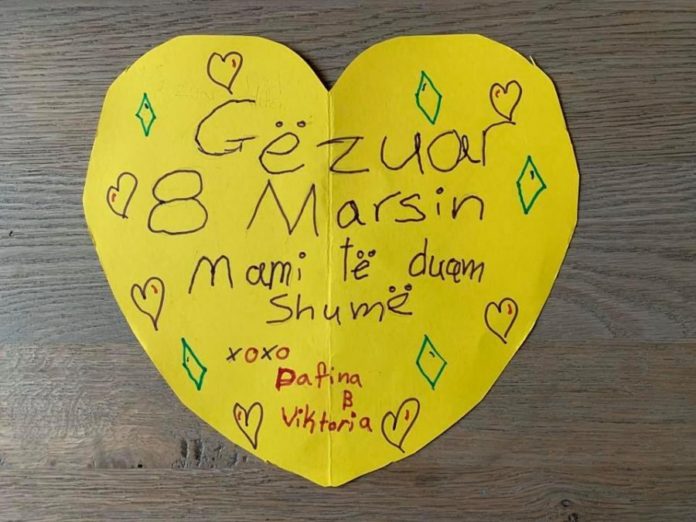 Gëzuar
8 Marsin
Mami të duam
shumë
xoxo
Dafina
B
Viktoria